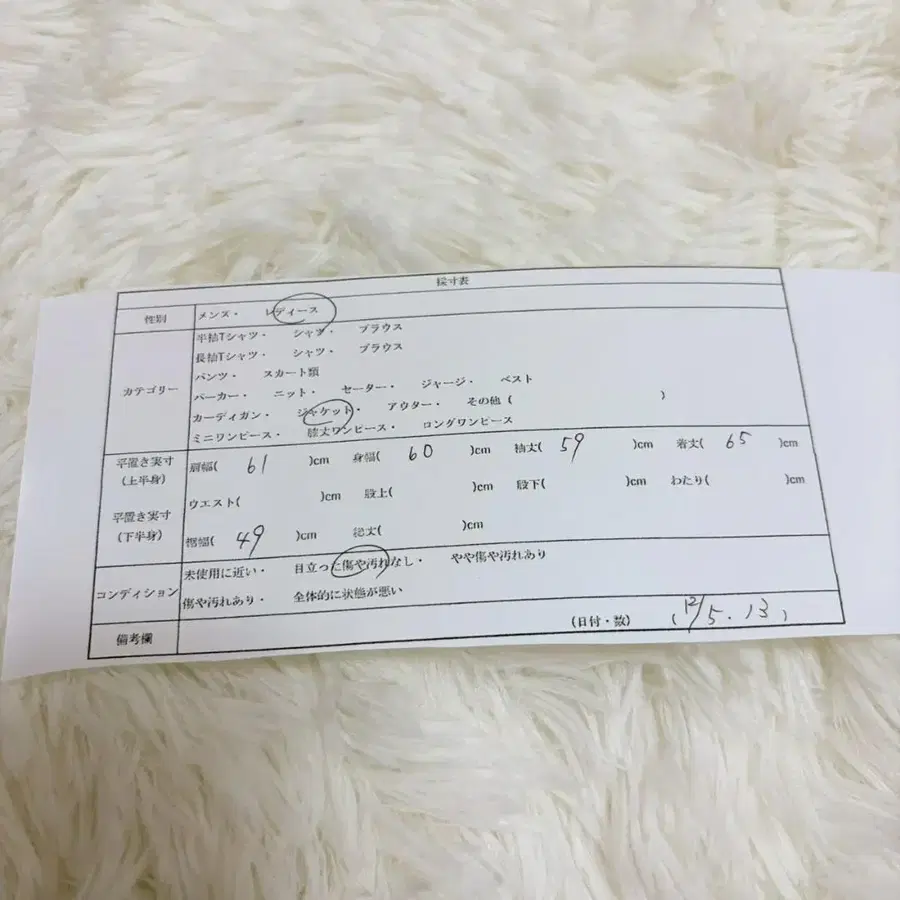 採寸表
性別 メンズ・ レディース
カテゴリー
半袖Tシャツ・ シャツ・ ブラウス
長袖Tシャツ・ シャツ・ ブラウス
パンツ・ スカート類
パーカー・ ニット・ セーター・ ジャージ・ ベスト
カーディガン・ ジャケット・ アウター・ その他( )
ミニワンピース・ 膝丈ワンピース・ ロングワンピース
平置き実寸(上半身) 肩幅( 61 )cm 身幅( 60 )cm 袖丈( 59 )cm 着丈( 65 )cm
平置き実寸(下半身) ウエスト( )cm 股上( )cm 股下( )cm わたり( )cm
裾幅( 49 )cm 総丈( )cm
コンディション 未使用に近い・ 目立った傷や汚れなし・ やや傷や汚れあり
傷や汚れあり・ 全体的に状態が悪い
備考欄 (日付・数) ( 12/5.13 )